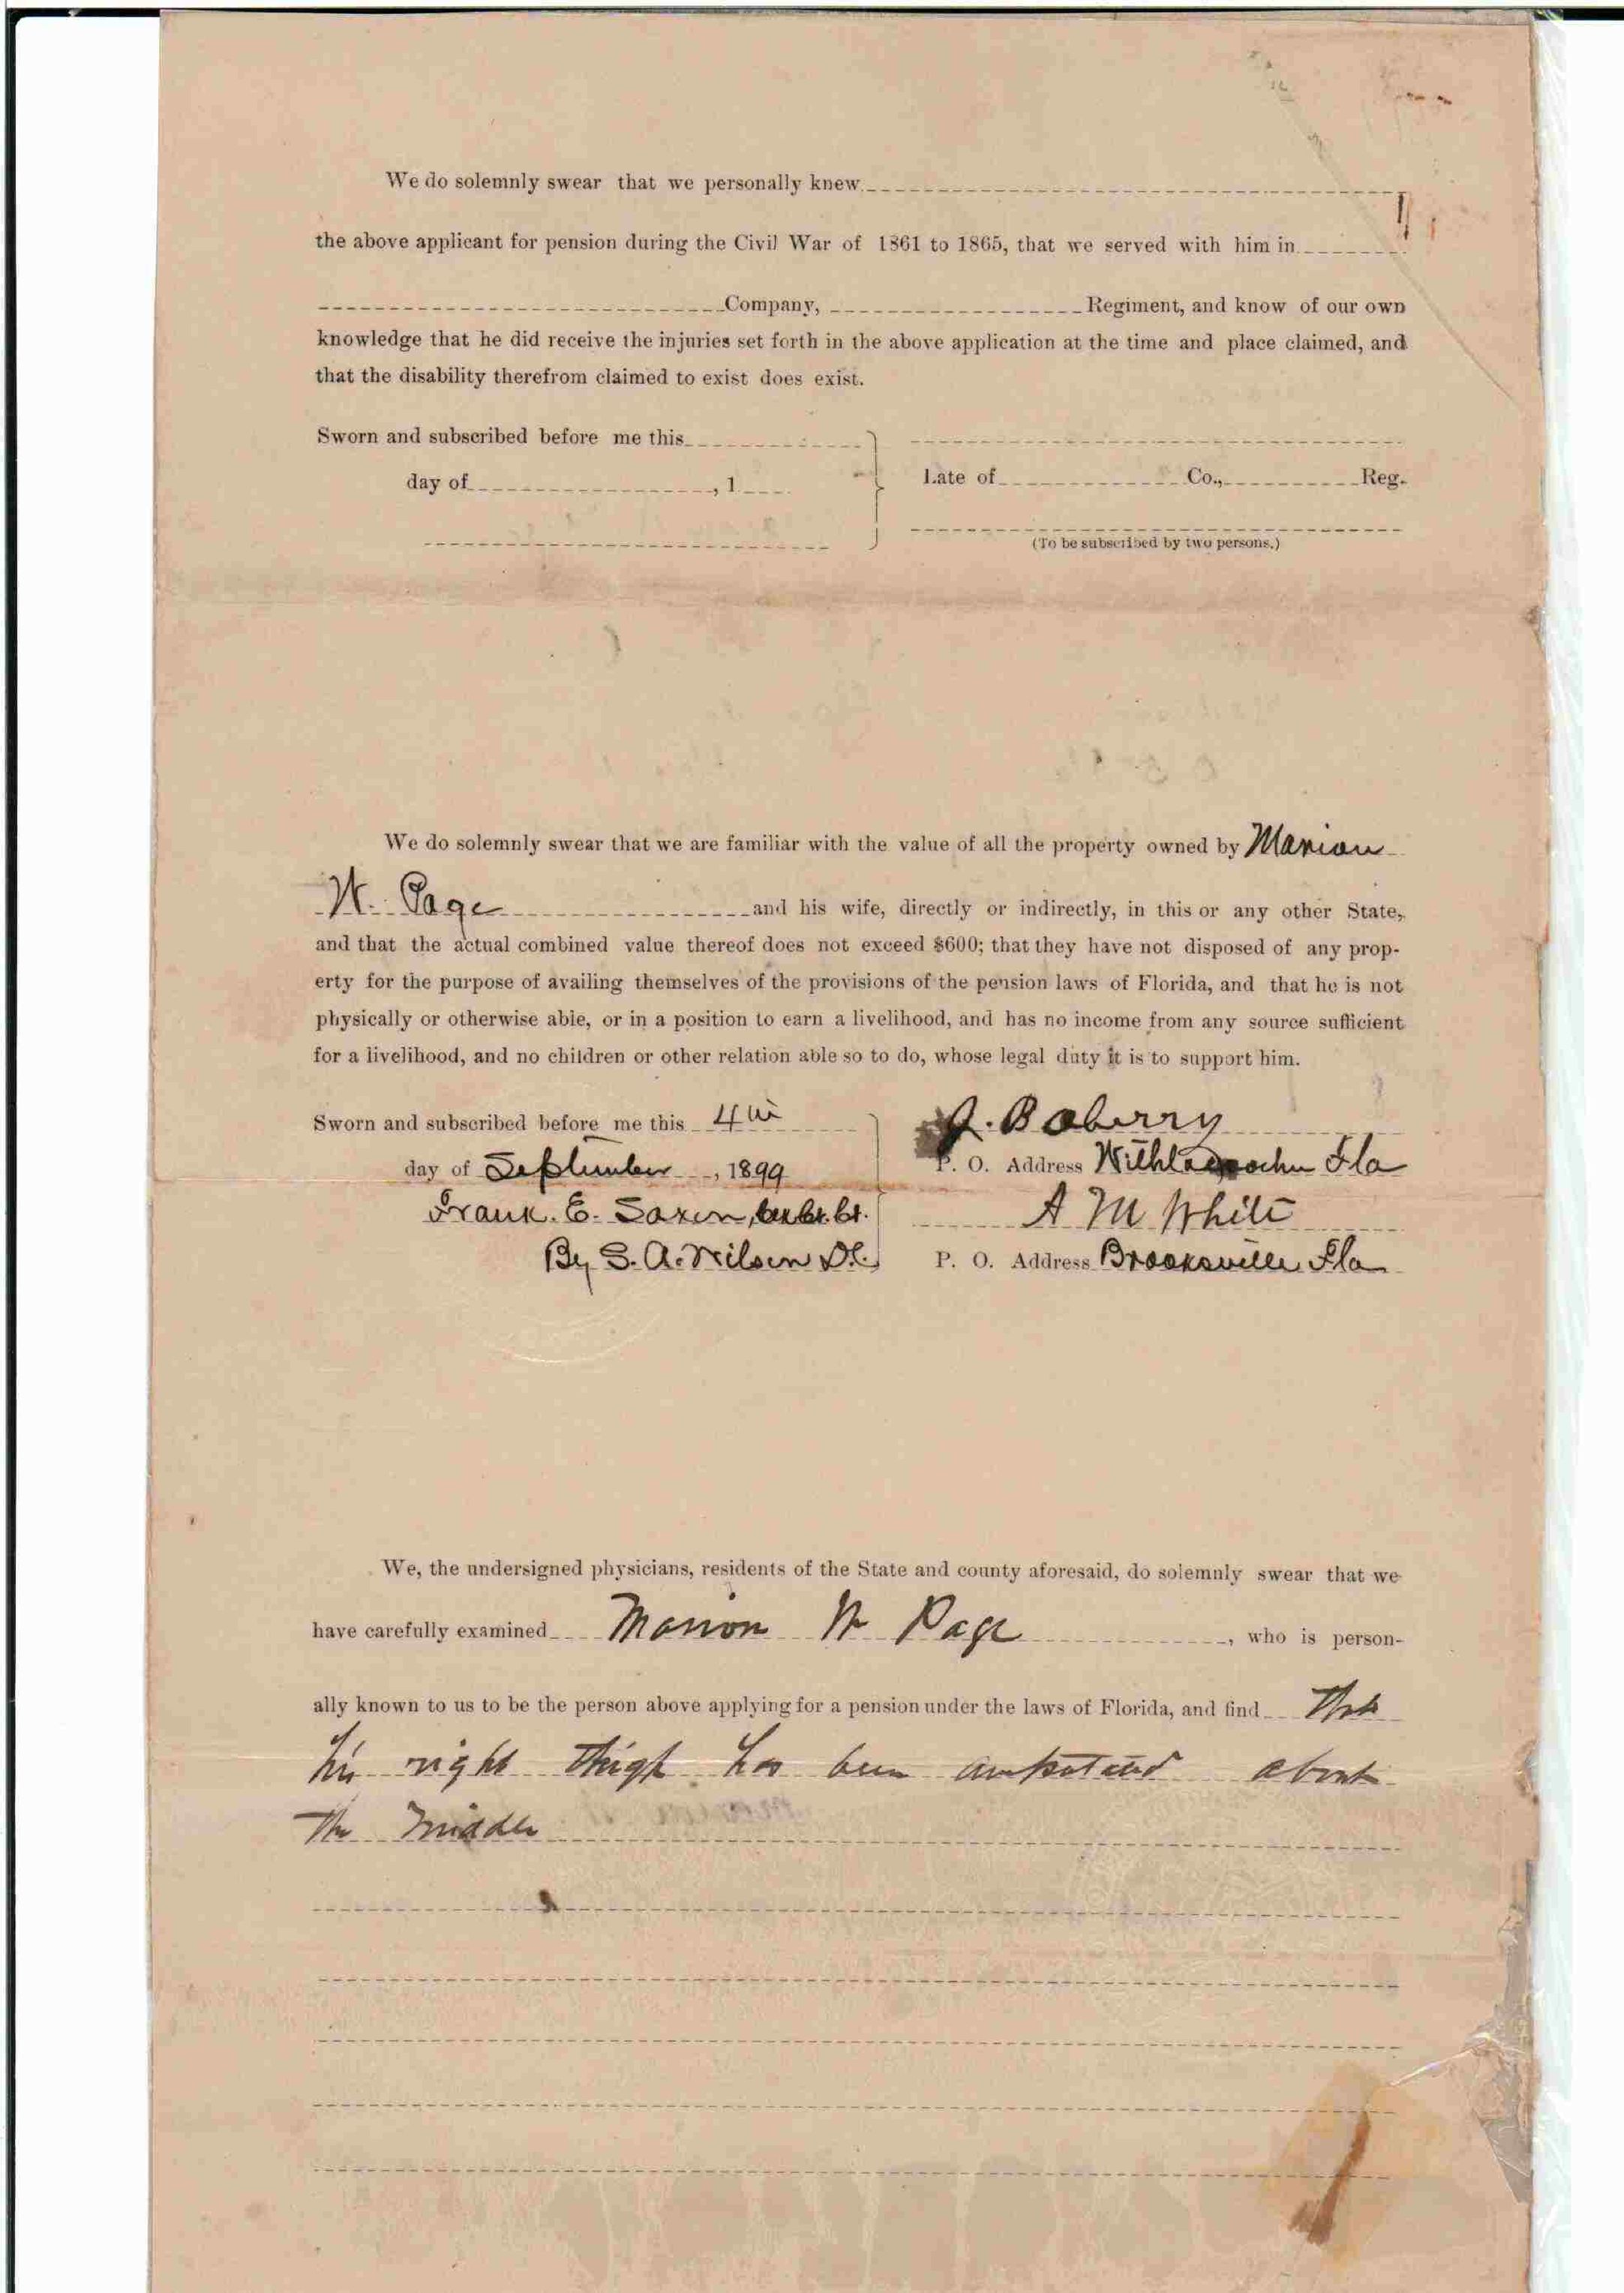 We do solemnly swear that we personally knew
the above applicant for pension during the Civil War of 1861 to 1865, that we served with him in
Company, Regiment, and know of our own
knowledge that he did receive the injuries set forth in the above application at the time and place claimed, and
that the disability therefrom claimed to exist does exist.
Sworn and subscribed before me this
day of , 1
Late of Co., Reg.
(To be subscribed by two persons.)
We do solemnly swear that we are familiar with the value of all the property owned by Marion
W. Page and his wife, directly or indirectly, in this or any other State,
and that the actual combined value thereof does not exceed $600; that they have not disposed of any prop-
erty for the purpose of availing themselves of the provisions of the pension laws of Florida, and that he is not
physically or otherwise able, or in a position to earn a livelihood, and has no income from any source sufficient
for a livelihood, and no children or other relation able so to do, whose legal duty it is to support him.
Sworn and subscribed before me this 4th
day of September, 1899
Frank. E. Saxon,
By S. A. Wilson D.C.
J. Baberry
P. O. Address Fla
A M White
P. O. Address Brooksville, Fla
We, the undersigned physicians, residents of the State and county aforesaid, do solemnly swear that we
have carefully examined Marion W Page, who is person-
ally known to us to be the person above applying for a pension under the laws of Florida, and find that
his right thigh has been amputated about
the middle